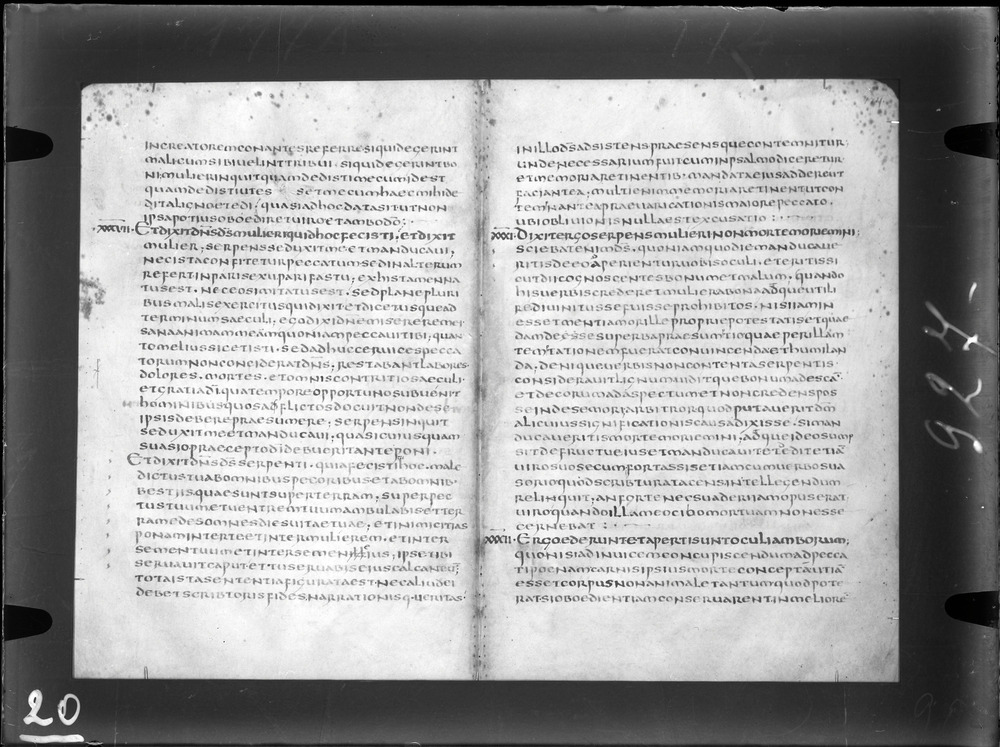 INCREATOREMCONANTESREFERRESIQUIDEGERINT
MALICUMSIBIUELINTTRIBUI·SIQUIDEGERINTBO
NI;MULIERINQUITQUAMDEDISTIMECUMIDEST
QUAMDEDISTIUTES SETMECUMHAECMIHIDE
DITALIGNOETEDI;QUASIADHOCDATASITUTNON
IPSAPOTIUSOBOEDIRETUIROETAMBODŌ;
XXXVII·ETDIXITDNSDSMULIERIQUIDHOCFECISTI;ETDIXIT
MULIER;SERPENSSEDUXITMEETMANDUCAUI;
NECISTACONFITETURPECCATUMSEDINALTERUM
REFERTINPARISEXUPARIFASTU;EXHISTAMENNA
TUSEST·NECEOSIMITATUSEST·SEDPLANEPLURI
BUSMALISEXERCITUSQUIDIXITETDICETUSQUEAD
TERMINUMSAECULI;EGODIXIDNEMISEREREMEI
SANAANIMAMMEĀMQUONIAMPECCAUITIBI;QUAN
TOMELIUSSICETISTI·SEDADHUCCERUICESPECCA
TORUMNONCONSIDERATDNS;RESTABANTLABORES·
DOLORES·MORTES·ETOMNISCONTRITIOSAECULI·
ETGRATIADĪQUATEMPOREOPPORTUNOSUBUENIT
HOMINIBUSQUOSADFLICTOSDOCUITNONDESE
IPSISDEBEREPRAESUMERE;SERPENSINQUIT
SEDUXITMEETMANDUCAUI;QUASICUIUSQUAM
SUASIOPRAECEPTODĪDEBUERITANTEPONI·
ETDIXITDNSDSSERPENTI·QUIAFECISTIHOC·MALE
DICTUSTUABOMNIBUSPECORIBUSETABOMNIB·
BESTIISQUAESUNTSUPERTERRAM;SUPERPEC
TUSTUUMETUENTREMTUUMAMBULABISETTER
RAMEDESOMNESDIESUITAETUAE;ETINIMICITIAS
PONAMINTERTEETINTERMULIEREM·ETINTER
SEMENTUUMETINTERSEMENILLIUS;IPSETIBI
SERUAUITCAPUTETTUSERUABISEIUSCALCANEŪ;
TOTAISTASENTENTIAFIGURATAEST·NECALIUDEI
DEBETSCRIBTORISFIDESNARRATIONISQ·UERITAS·
INILLODSADSISTENSPRAESENSQUECONTEMNITUR·
UNDENECESSARIUMFUITCUMINPSALMODICERETUR·
ETMEMORIARETINENTIB·MANDATAEIUSADDERETUT
FACIANTEA·MULTIENIMMEMORIARETINENTUTCON
TEMNANT·EAPRAEUARICATIONISMAIOREPECCATO·
UBIOBLIUIONISNULLAESTEXCUSATIO
XXXI·DIXITERGOSERPENSMULIERINONMORTEMORIEMINI;
SCIEBATENIMDS·QUONIAMQUODIEMANDUCAUE
RITISDEEOAPERIENTURUOBISOCULI·ETERITISSI
CUTDIICOGNOSCENTESBONUMETMALUM·QUANDO
HISUERBISCREDERETMULIERABONAADQUEUTILI
REDIUINITUSSEFUISSEPROHIBITOS·NISIIAMIN
ESSETMENTIAMORILLEPROPRIEPOTESTATISETQUAE
DAMDESESUPERBAPRAESUMTIOQUAEPERILLAM
TEMTATIONEMFUERATCONUINCENDAETHUMILAN
DA;DENIQUEUERBISNONCONTENTASERPENTIS·
CONSIDERAUITLIGNUMUIDITQUEBONUMADESCĀ·
ETDECORUMADASPECTUMETNONCREDENSPOS
SEINDESEMORIARBITRORQUODPUTAUERITDM
ALICUIUSSIGNIFICATIONISCAUSADIXISSE·SIMAN
DUCAUERITISMORTEMORIEMINI;ADQUEIDEOSUMP
SITDEFRUCTUEIUSETMANDUCAUITETDEDITETIĀ
UIROSUOSECUMFORTASSISETIAMCUMUERBOSUA
SORIOQUODSCRIBTURATACENSINTELLEGENDUM
RELINQUIT;ANFORTENECSUADERIIAMOPUSERAT
UIROQUANDOILLAMEOCIBOMORTUAMNONESSE
CERNEBAT
XXXII·ERGOEDERUNTETAPERTISUNTOCULIAMBORUM;
QUONISIADINUICEMCONCUPISCENDUMADPECCA
TIPOENAMCARNISIPSIUSMORTECONCEPTĀUTIĀ
ESSETCORPUSNONANIMALETANTUMQUODPOTE
RATSIOBOEDIENTIAMCONSERUARENTINMELIORĒ
924
20